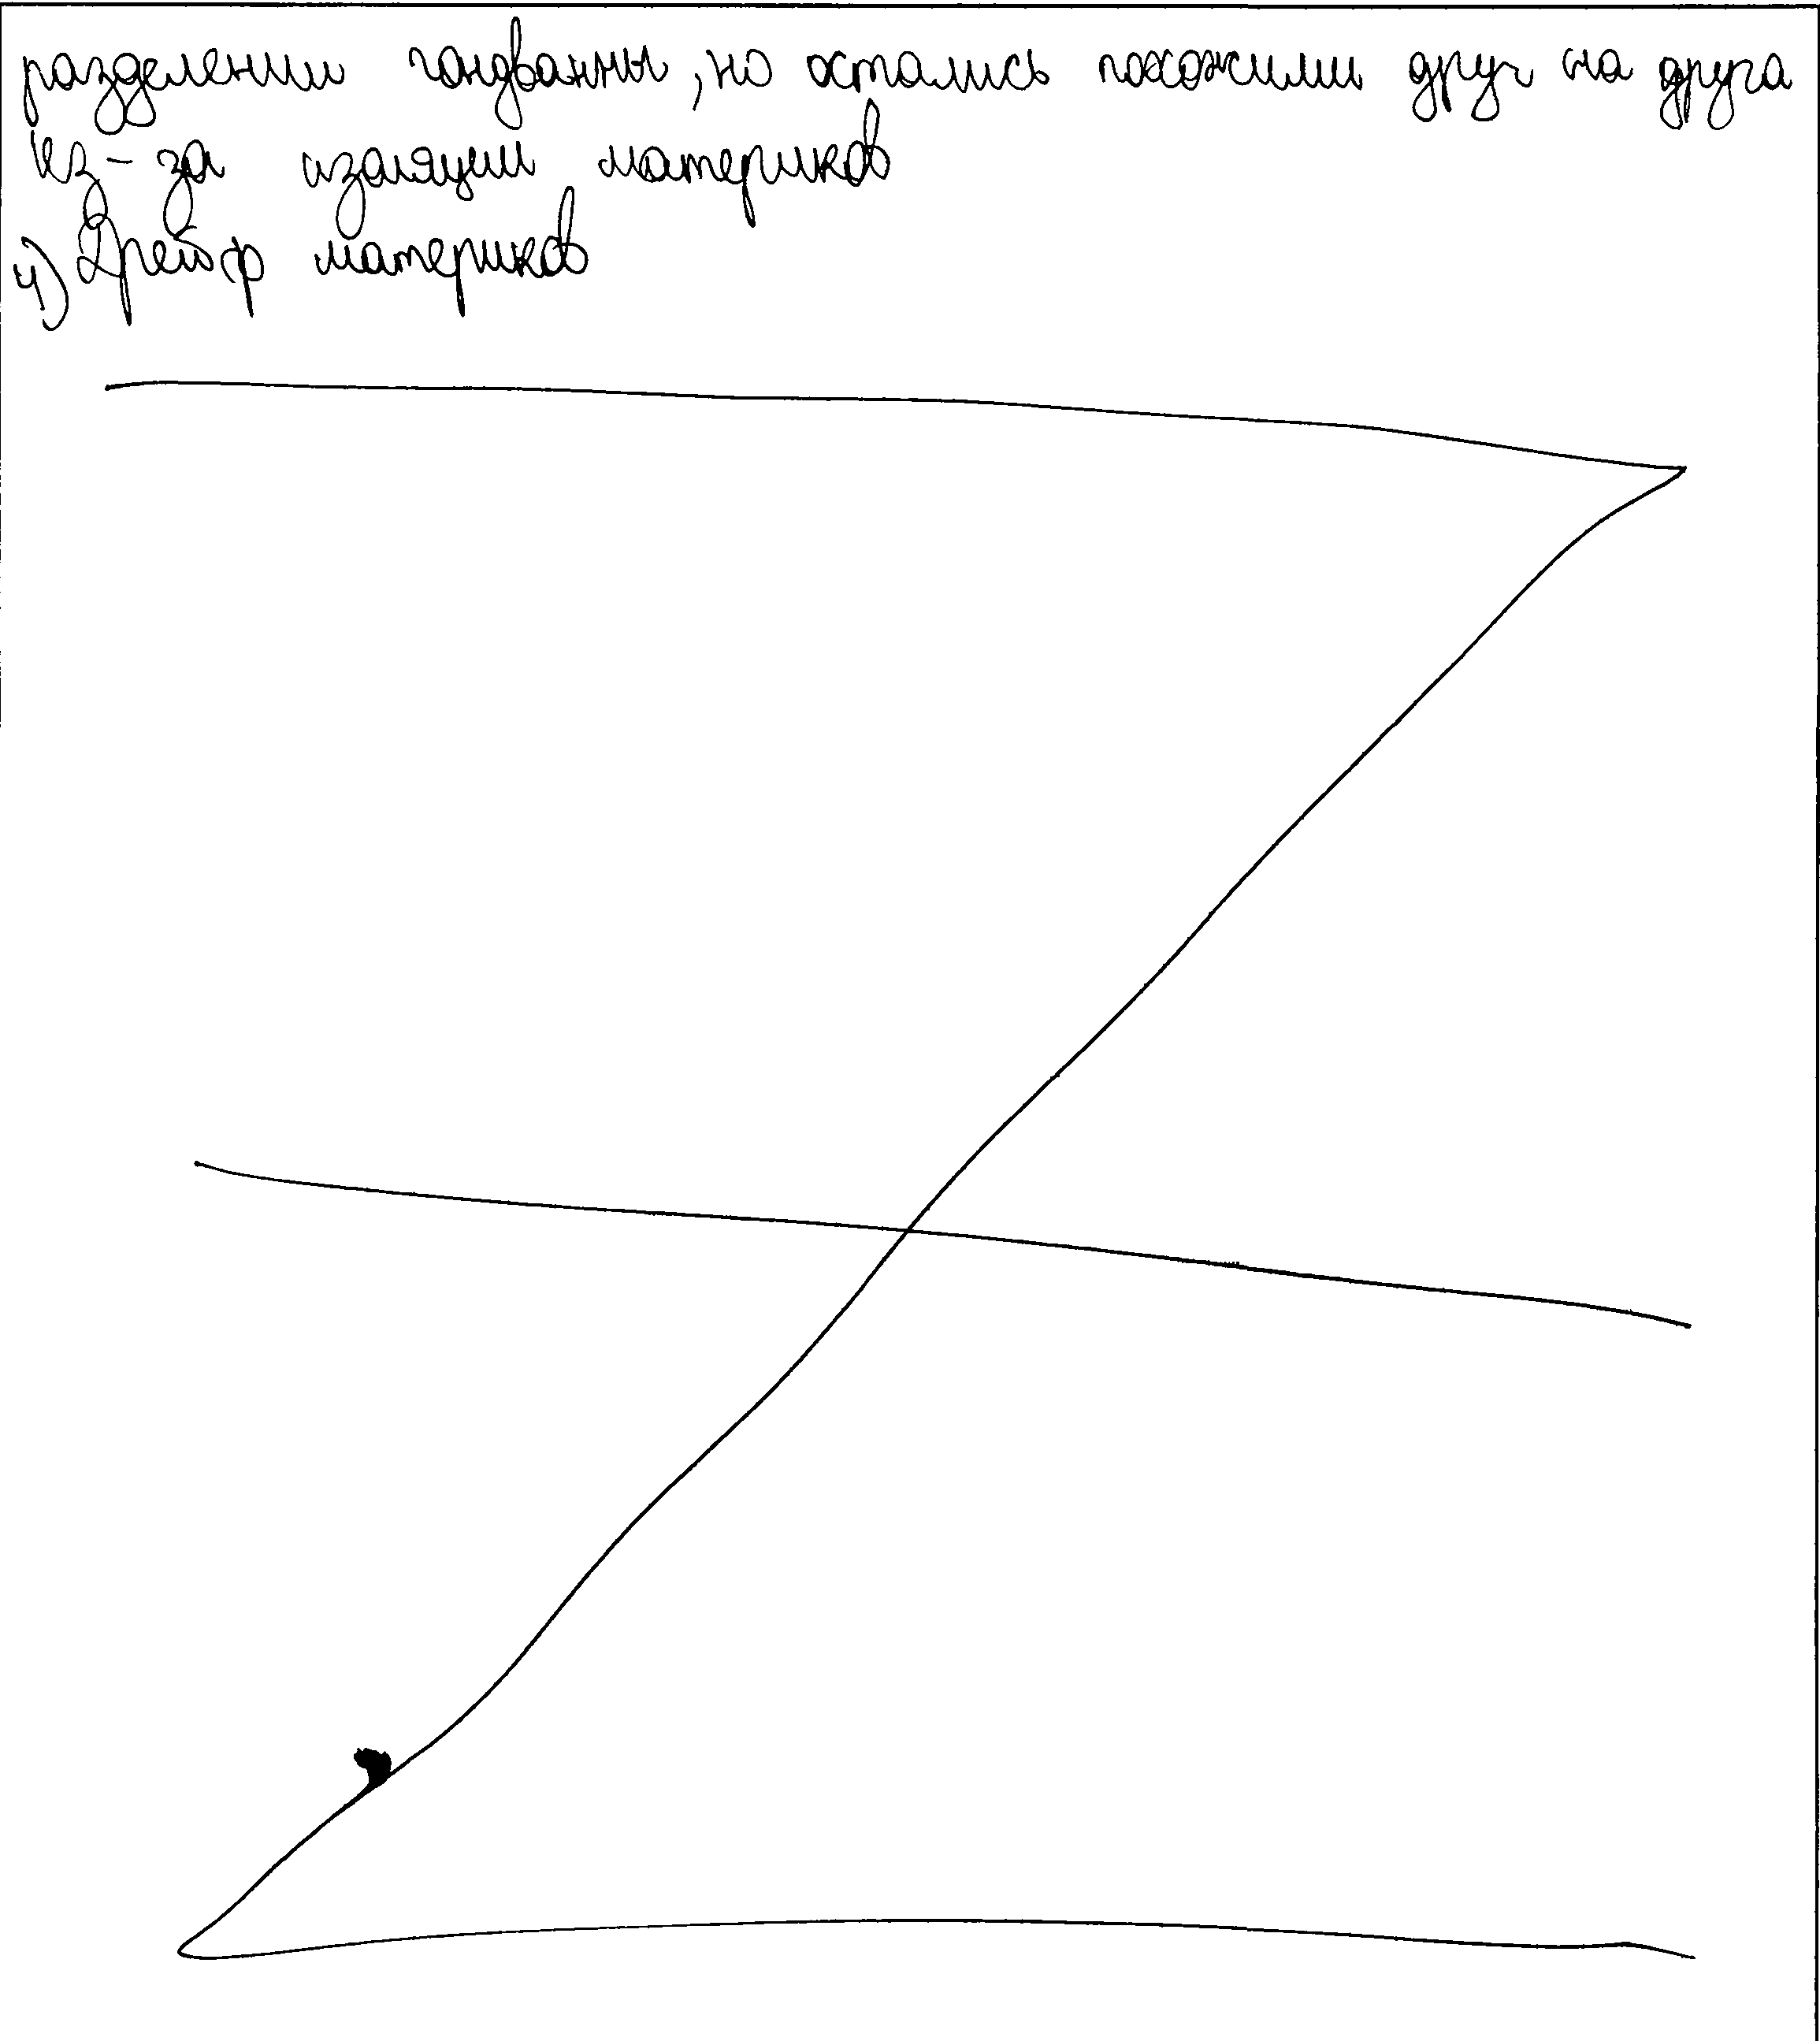 разделении гондванны, но остались похожими друг на друга
из-за изаляции материков
4) Дрейф материков